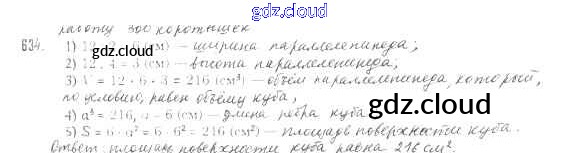 gdz.cloud
работу 300 коротышек
634. 1) 12 (см) — ширина параллелепипеда;
gdz.cloud
2) 12 : 4 = 3 (см) — высота параллелепипеда;
3) V = 12 · 6 · 3 = 216 (см³) — объём параллелепипеда, который,
по условию, равен объёму куба;
gdz.cloud
4) a³ = 216, a = 6 (см) — длина ребра куба
5) S = 6 · a² = 6 · 6² = 216 (см²) — площадь поверхности куба.
Ответ: площадь поверхности куба равна 216 см².
gdz.cloud